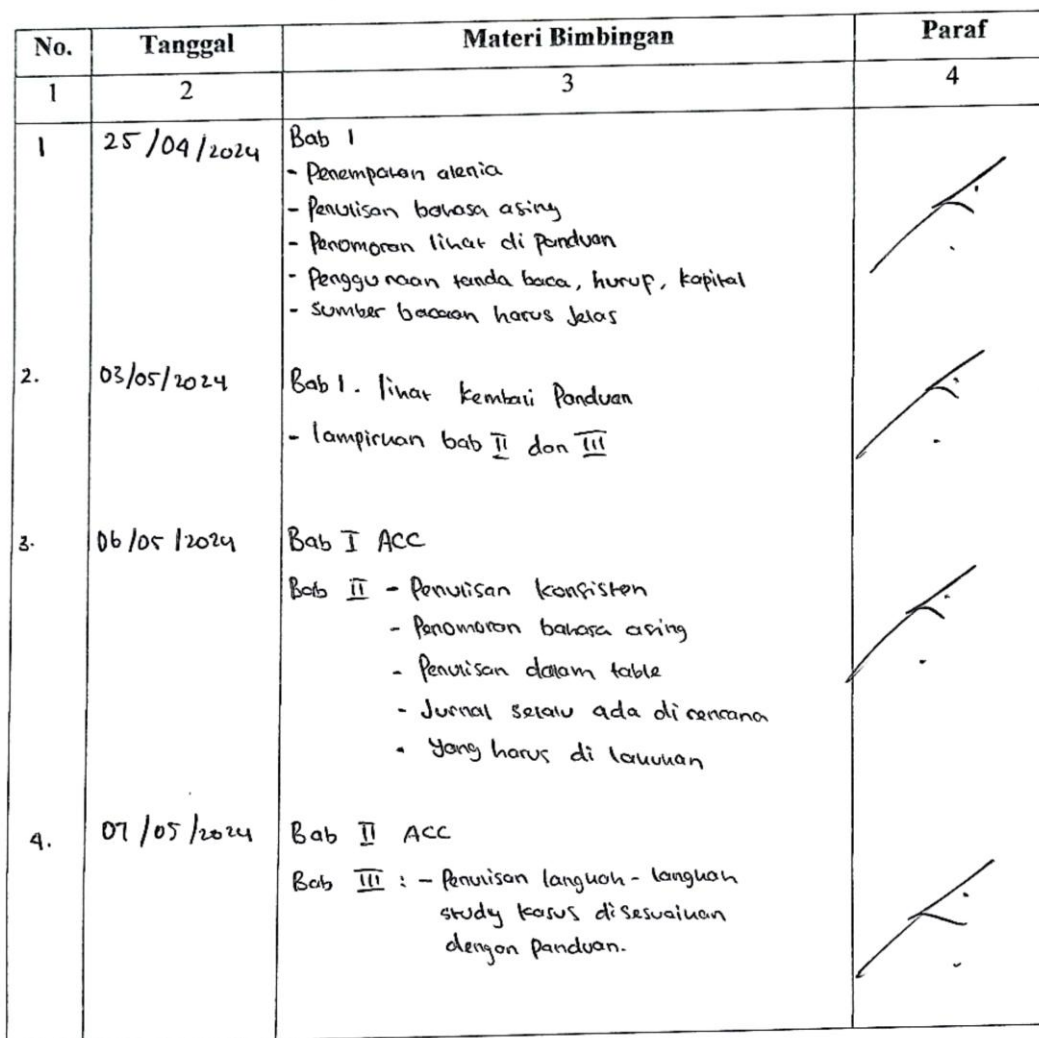 No. Tanggal Materi Bimbingan Paraf
1 2 3 4
1 25/04/2024 Bab 1
- Penempatan alenia
- Penulisan bahasa asing
- Penomoran lihat di panduan
- Penggunaan tanda baca, huruf, kapital
- Sumber bacaan harus Jelas
2. 03/05/2024 Bab 1. lihat kembali Panduan
- lampirkan bab II dan III
3. 06/05/2024 Bab I ACC
Bab II - Penulisan konsisten
- Penomoran bahasa asing
- Penulisan dalam table
- Jurnal selalu ada di rencana
- Yang harus di lakukan
4. 07/05/2024 Bab II ACC
Bab III : - Penulisan langkah-langkah
study kasus disesuaikan
dengan Panduan.